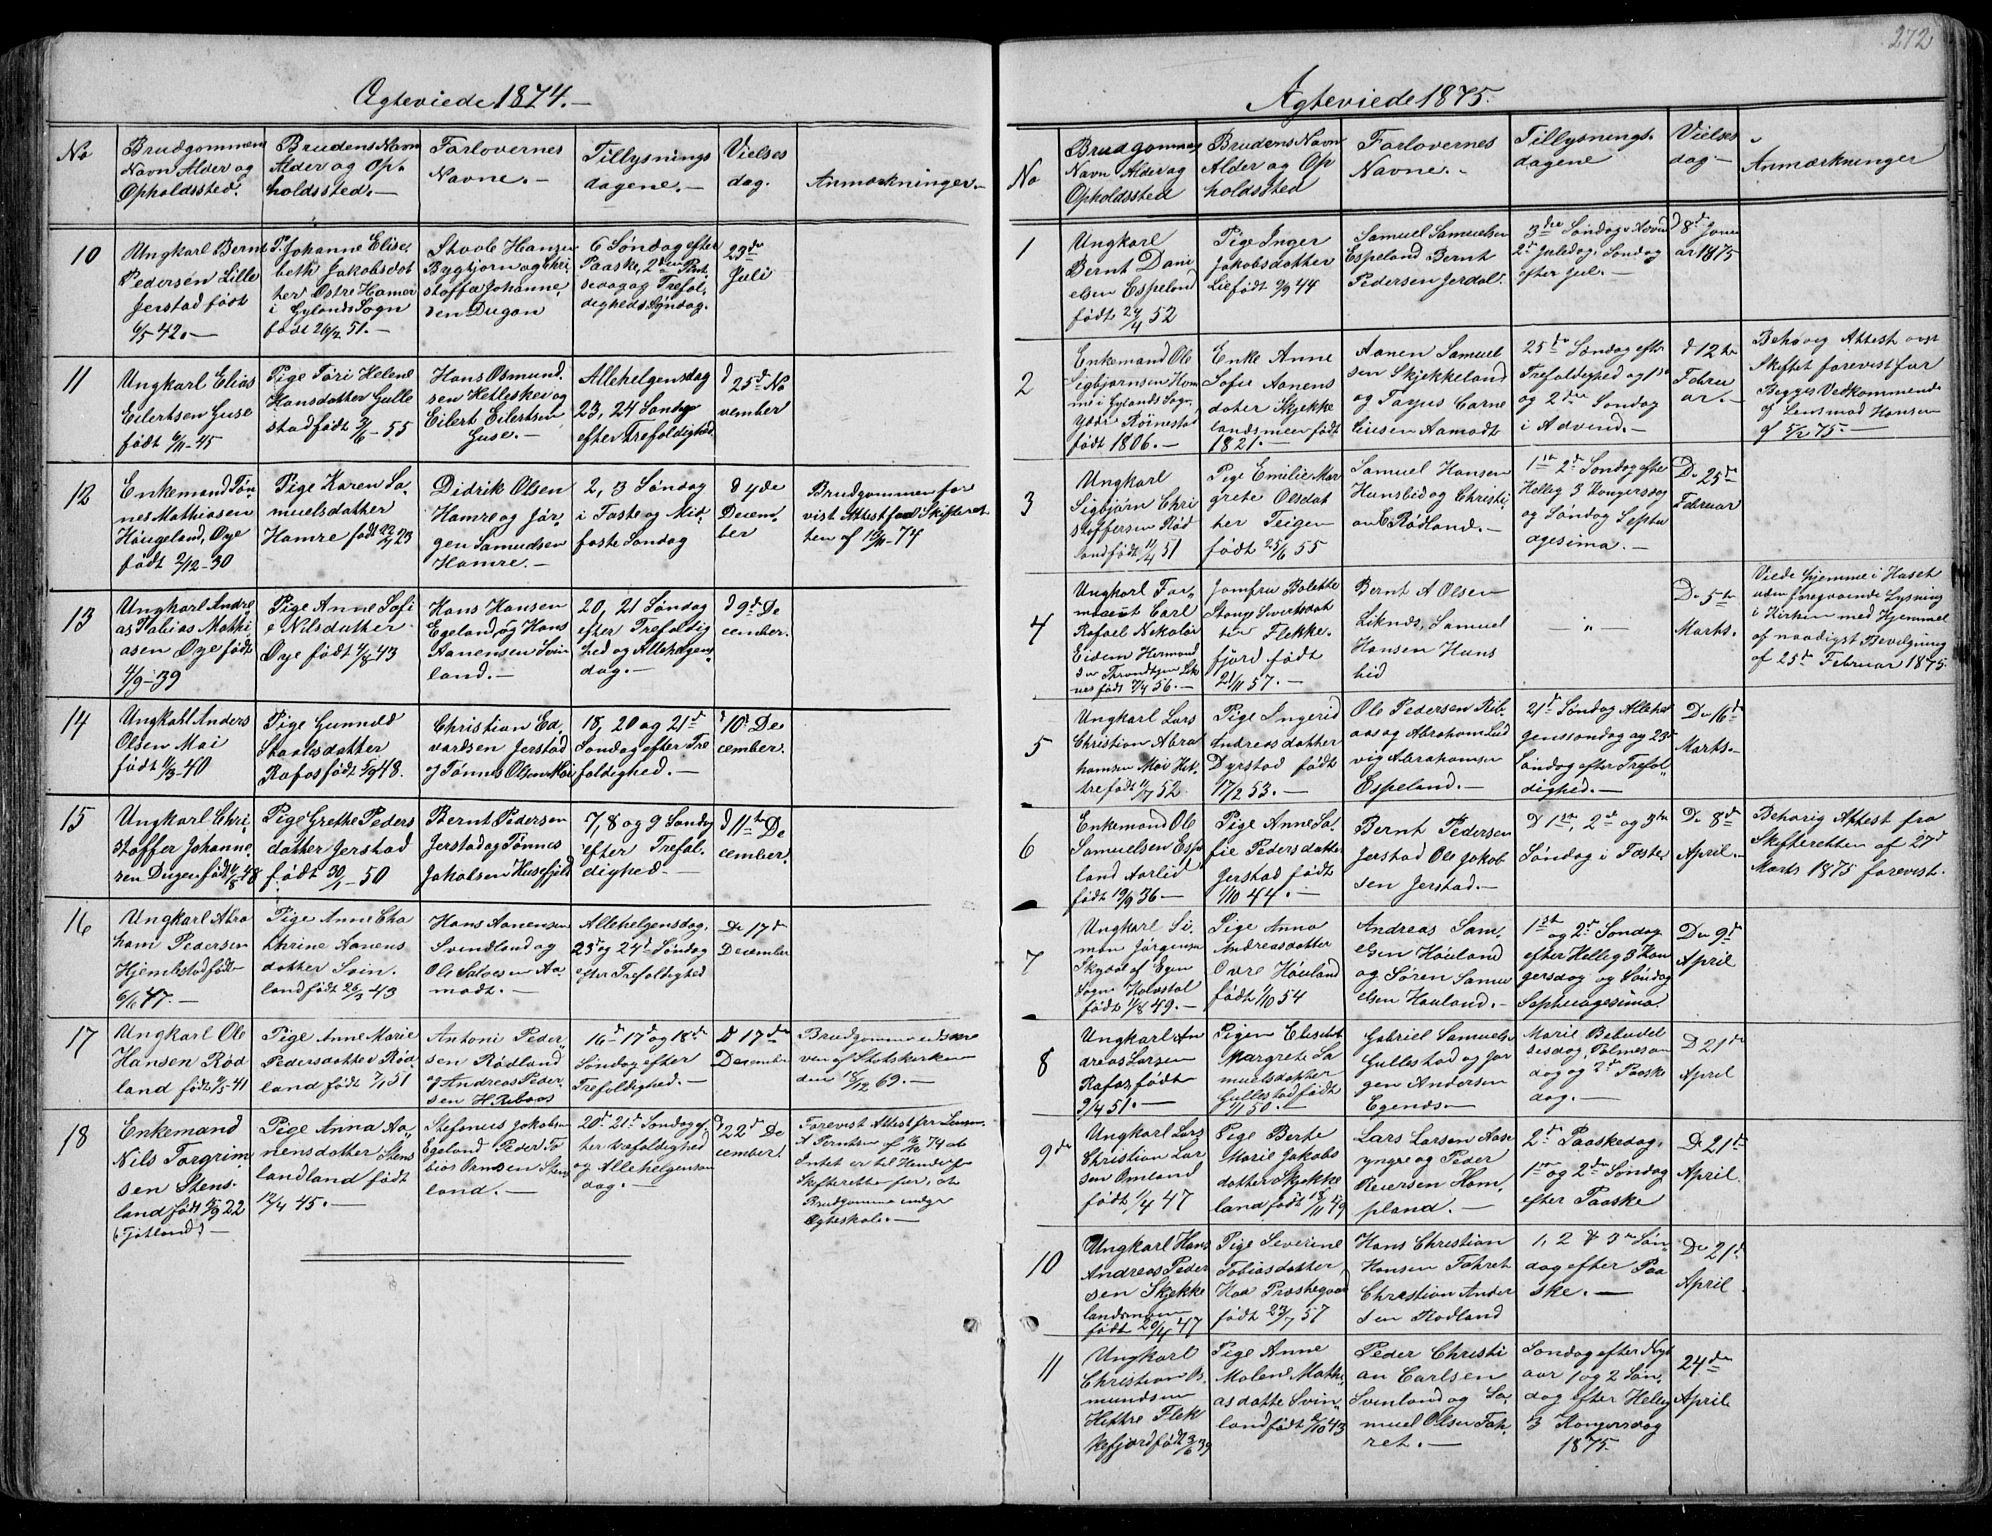 272
Ægteviede 1874.-
No
Brudgommens
Navn Alder og
Opholdssted.
Brudens Navn
Alder og Op-
holdssted.-
Forlovernes
Navne.-
Tillysnings
dagene.-
Vielses
dag.
Anmærkninger.-
10
Ungkarl Bernt
Pedersen Lille
Jerstad født
6/5 42.-
P. Johanne Elisa-
beth Jakobsdot
ter Østre Hamer
i Gylands Sogn
født 26/2 51.-
Hansen
Bygbjorn og Kri-
stoffer Johanne-
sen Dugan
6 Søndag efter
Paaske, 2den Pint-
sedag og Trefol-
digheds Søndag.
23de
Juli
11
Ungkarl Elias
Eilertsen Guse
født 6/11-45
Pige Tori Helene
Hansdatter Gulle
stad født 3/6-55
Hans Osmund-
sen Ketleskei og
Eilert Eilertsen
Guse.-
Allehelgensdag
23, 24 Søndag
efter Trefoldighed
d 25de No
vember
12
Enkemand Tøn-
nes Mathiasen
Haugeland, Øye
født 2/12-30
Pige Karen Sa-
muelsdatter
Hamre født 22/4 23
Didrik Olsen
Hamre og Jør-
gen Samuelsen
Hamre.-
2, 3 Søndag
i Faste og Mid-
faste Søndag
d 4de
Decem-
ber
Brudgommen fore-
vist Attest fra Skifteret-
ten af 19/11-74
13
Ungkarl Andre
as Tobias Mathi-
asen Øye født
4/9-39
Pige Anne Sofi
e Nilsdatter
Øye født 4/8 43
Hans Hansen
Egeland og Hans
Aanensen Svin
land.-
20, 21 Søndag
efter Trefoldig
hed og Allehelgens-
dag.-
d 9de De
cember.
14
Ungkarl Anders
Olsen Moi
født 11/3-40
Pige Gunnild
Staalesdatter
Rafos født 5/9 48.
Christian Ed-
vardsen Jerstad
og Tønnes Olsen Moi
18, 20 og 21de
Søndag efter Tre
foldighed.-
d 10de De
cember.
15
Ungkarl Chri-
stoffer Johanne-
sen Dugen født 4/8 48
Pige Grethe Peders
datter Jerstad
født 30/1-50
Bernt Pedersen
Jerstad og Tønnes
Jakobsen Husefjeld
7, 8 og 9 Søndag
efter Trefol-
dighed.-
d 11te De
cember.
16
Ungkarl Abra
ham Pedersen
Hjemlestad født
6/6 47.-
Pige Anne Cha
thrine Aanens
datter Svin-
land født 26/3 43
Hans Aanensen
Svindland og
Ole Salvesen Aa-
modt.-
Allehelgensdag,
23de og 24de Søndag
efter Trefoldighed
De 17de
December
17
Ungkarl Ole
Hansen Rød
land født 7/5-41
Pige Anne Marie
Pedersdatter Rød-
land født 7/1 51
Antoni Peder-
sen Rødland
og Andreas Peder-
sen H. Ribaas
16de 17de og 18de
Søndag efter
Trefoldighed.-
D 17de
December
Brudgommen
ven af Statskirken
den 18/12 69.-
18
Enkemand
Nils Torgrim-
sen Stens-
land født 5/9 22
(Fjotland)-
Pige Anna Aa-
nensdatter Stens
landland født
12/4 45.-
Stefanus Jakobsen
Egeland Peder To-
bias Omsen Stens
land.-
20de 21de Søndag ef-
ter trefoldighed
og Allehelgens
dag.-
d 22de De
cember
Forevist Attest fra
A Berntsen af 74 at
Intet er til Hinder fra
Skifteretten for, at
Brudgommen indgaar
Ægteskab.-
Ægteviede 1875.
No
Brudgommens
Navn Alder og
Opholdssted
Brudens Navn
Alder og Op
holdssted
Forlovernes
Navne.-
Tillysnings-
dagene
Vielses
dag-
Anmærkninger
1
Ungkarl
Bernt Dani
elsen Espeland
født 24/4 52
Pige Inger
Jakobsdatter
Lie født 2/9 44
Samuel Samuelsen
Espeland Bernt
Pedersen Jerdal.
3die Søndag i Advent
2de Juledag, Søndag
efter Jul.-
D 8de Janu
ar 1875
2
Enkemand Ole
Sigbjørnsen Hom
me i Gylands Sogn,
Ydre Rørnestad
født 1806.-
Enke Anne
Sofie Aanens
datter Skjekke
landsmoen født
1821.-
Aanen Samuel
sen Skjekkeland
og Tarjus Carne
liusen Aamodt
25de Søndag efter
Trefoldighed og 1ste
og 2den Søndag
i Advend.-
d 12te
Februar
ar.-
Behøvig Attest
Skiftet forevist for
Begges Vedkommende
af Lensmd Hansen
af 5/2 75.-
3
Ungkarl
Sigbjørn Chri
stoffersen Rød
land født 4/4 51
Pige Emilie Mar
grete Olsdat
ter Teigen
født 25/6 55
Samuel Hansen
Hunsbed og Christi-
an E Rødland.-
1ste 2de Søndag efter
Hellig 3 Kongersdag
og Søndag Septu
agesima.-
De 25de
Februar
4
Ungkarl Far-
maceut Carl
Rafael Nikolai
Eidem Hermand
der Throndhjem Lik
nes født 7/4 56.-
Jomfru Bolette
Stang Sivertsdat
ter Flekke-
fjord født
21/11 57.-
Bernt A Olsen
Liknes, Samuel
Hansen Huns
bid
- „ -
De 5te
Marts.
Viede hjemme i Huset
uden foregaaende Lysning
i Kirken med Hjemmel
af naadigst Bevilgning
af 25de Februar 1875.
5
Ungkarl Lars
Christian Abra
hamsen Moi Het-
tre født 11/7 52
Pige Ingerid
Andreasdatter
Dyrstad født
17/2 53.-
Ole Pedersen Rib-
aas og Abraham Lud
vig Abrahamsen
Espeland.-
21de Søndag Allehel
genssondag og 23de
Søndag efter Trefol-
dighed.-
De 16de
Marts.-
6
Enkemand Ole
Samuelsen Espe
land Aarlid
født 19/9 36-
Pige Anne So-
fie Pedersdatter
Jerstad født
1/10 44.-
Bernt Pedersen
Jerstad Ole Jakob
sen Jerstad.-
D 1ste, 2de og 3die
Søndag i Faste.
De 8de
April.-
Behørig Attest fra
Skifteretten af 27de
Marts 1875 forevist.
7
Ungkarl Si-
mon Jørgensen
af Egen
Sogne
født 1/8 49.-
Pige Anna
Andreasdatter
Øvre Høiland
født 1/10 54
Andreas Sam-
elsen Høiland
og Søren Samu
elsen Høiland.-
1ste og 2de Søndag
efter Hellig 3 Kon
gersdag og Søndag
Septuagesima
De 9de
April
8
Ungkarl An
dreas Larsen
Rafos født
9/4 51.-
Pigen Elisabet
Margrete Sa-
muelsdatter
Gullestad født
9/1 50.-
Gabriel Samuels-
Gullestad og Jør
gen Andersen
Egenes.-
Marie Bebudel
sesdag, Palmesøn
dag og 2de Paaske
dag.-
D 21de
April
9de
Ungkarl Lars
Christian Lar
sen Omland
født 1/4 47
Pige Berte
Marie Jakobs
datter Skjekke
land født 18/11 49
Lars Larsen Aase
yngre og Peder
Reiersen Hom-
pland.-
2de Paaskedag,
1ste og 2den Søndag
efter Paaske
De 21de
April
10
Ungkarl Hans
Andreas Peder
sen Skjekke
landsmoen
født 20/4 47
Pige Severine
Tobiasdatter,
Hoa Præstegaard
født 23/7 57
Hans Christian
Hansen Fahret
Christian Ander
sen Rødland
1, 2 & 3de Søn-
dag efter Paa
ske.-
De 21de
April
11
Ungkarl
Christian As
mundsen
Hettre Flek
kefjord født 23/6 39
Pige Anne
Malene Mathi-
asdatte Svin-
land født 6/10 43
Peder Christi
an Carlsen
Svinland og Sa-
muel Olsen Fah-
ret.-
Søndag efter Nyt
aar 1 og 2 Søn-
dag efter Hellig
3 Kongersdag
1875.
24de
April.